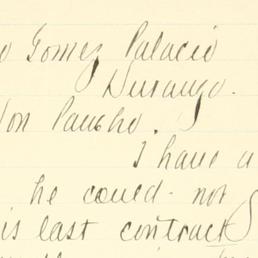 o Gomez Palacio
Durango.
Don Pancho.
I have a
he could not
is last contract